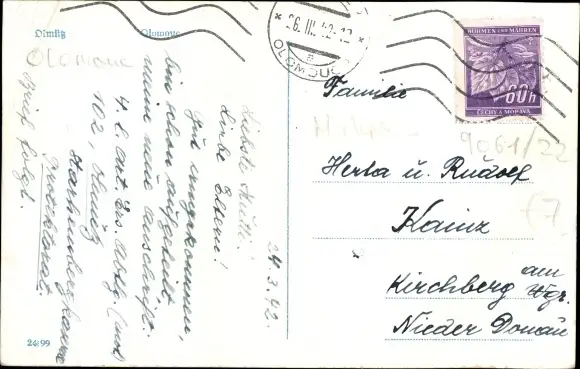 Olmütz
Olomouc
Olomouc
24.3.42.
Liebste Mutti!
Liebe Eltern!
Gut angekommen,
bin schon aufgeteilt
meine neue Anschrift.
4. l. Art. Ers. Abtlg. (mot)
102, Olmütz
Protektorat.
Brief folgt.
24/99
* 26.III.42-12 *
OLOMOUC
BÖHMEN UND MÄHREN
60h
ČECHY A MORAVA
Familie
9061/22
Herta u. Rudolf
Kainz
Kirchberg am
Wgr.
Nieder Donau